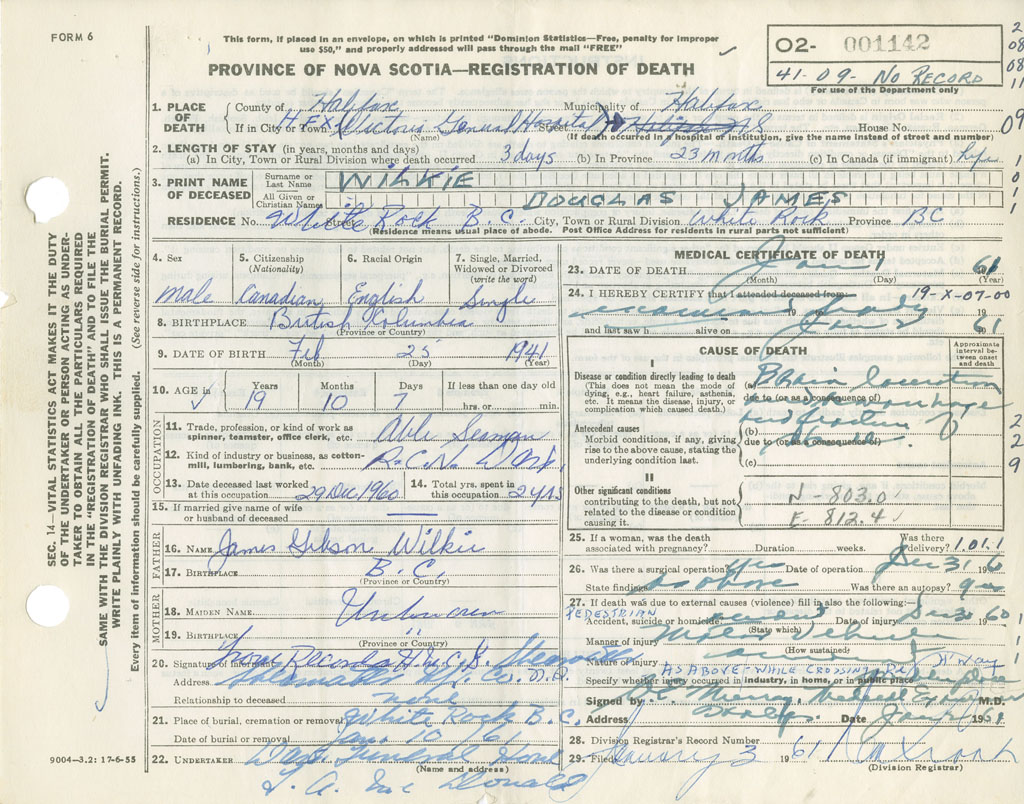 FORM 6
This form, if placed in an envelope, on which is printed "Dominion Statistics—Free, penalty for improper
use $50," and properly addressed will pass through the mail "FREE"
PROVINCE OF NOVA SCOTIA—REGISTRATION OF DEATH
02- 001142
41-09- No RECORD
For use of the Department only
1. PLACE OF DEATH
County of Halifax Municipality of Halifax
If in City or Town HFX Victoria General Hospital Street Halifax NS House No.
(Name) (If death occurred in a hospital or institution, give the name instead of street and number)
2. LENGTH OF STAY (in years, months and days)
(a) In City, Town or Rural Division where death occurred 3 days (b) In Province 23 months (c) In Canada (if immigrant) life
3. PRINT NAME OF DECEASED
Surname or Last Name WILKIE
All Given or Christian Names DOUGLAS JAMES
RESIDENCE No. White Rock B.C. Street City, Town or Rural Division White Rock Province BC
(Residence means usual place of abode. Post Office Address for residents in rural parts not sufficient)
4. Sex 5. Citizenship (Nationality) 6. Racial Origin 7. Single, Married, Widowed or Divorced (write the word)
Male Canadian English Single
8. BIRTHPLACE British Columbia
(Province or Country)
9. DATE OF BIRTH Feb 25 1941
(Month) (Day) (Year)
10. AGE in Years Months Days If less than one day old
19 10 7 hrs. or min.
OCCUPATION
11. Trade, profession, or kind of work as spinner, teamster, office clerk, etc. Able Seaman
12. Kind of industry or business, as cotton-mill, lumbering, bank, etc. R.C.N.
13. Date deceased last worked at this occupation 29 Dec 1960 14. Total yrs. spent in this occupation 2 yrs
15. If married give name of wife or husband of deceased —
FATHER
16. NAME James Gibson Wilkie
17. BIRTHPLACE B.C.
(Province or Country)
MOTHER
18. MAIDEN NAME Unknown
19. BIRTHPLACE "
(Province or Country)
20. Signature of informant From Records H.M.C.S.
Address
Relationship to deceased none
21. Place of burial, cremation or removal White Rock B.C.
Date of burial or removal Jan 10/61
22. UNDERTAKER
(Name and address)
9004—3.2: 17-6-55
MEDICAL CERTIFICATE OF DEATH
23. DATE OF DEATH Jan 1 61
(Month) (Day) (Year)
24. I HEREBY CERTIFY that I attended deceased from 19-X-07-00
examined body 19 19
and last saw h alive on Jan 2 61
CAUSE OF DEATH
Approximate interval between onset and death
I
Disease or condition directly leading to death
(This does not mean the mode of dying, e.g., heart failure, asthenia, etc. It means the disease, injury, or complication which caused death.)
(a) Brain laceration
due to (or as a consequence of)
and hemorrhage
Antecedent causes
Morbid conditions, if any, giving rise to the above cause, stating the underlying condition last.
(b) and fracture of
due to (or as a consequence of)
(c)
II
Other significant conditions
contributing to the death, but not related to the disease or condition causing it.
N - 803.0
E - 812.4
25. If a woman, was the death associated with pregnancy? Duration weeks. Was there delivery? 1.01.1
26. Was there a surgical operation? yes Date of operation Dec 31 196
State findings as above Was there an autopsy?
27. If death was due to external causes (violence) fill in also the following:—
PEDESTRIAN
Accident, suicide or homicide? Date of injury Dec 30 1960
(State which)
Manner of injury Motor Vehicle
(How sustained)
Nature of injury
AS ABOVE - WHILE CROSSING H'way
Specify whether injury occurred in industry, in home, or in public place
Signed by Murray, Medical M.D.
Address Date Jan 19
28. Division Registrar's Record Number
29. Filed January 3 1961
(Division Registrar)
SEC. 14—VITAL STATISTICS ACT MAKES IT THE DUTY
OF THE UNDERTAKER OR PERSON ACTING AS UNDER-
TAKER TO OBTAIN ALL THE PARTICULARS REQUIRED
IN THE "REGISTRATION OF DEATH" AND TO FILE THE
SAME WITH THE DIVISION REGISTRAR WHO SHALL ISSUE THE BURIAL PERMIT.
WRITE PLAINLY WITH UNFADING INK. THIS IS A PERMANENT RECORD.
Every item of information should be carefully supplied. (See reverse side for instructions.)